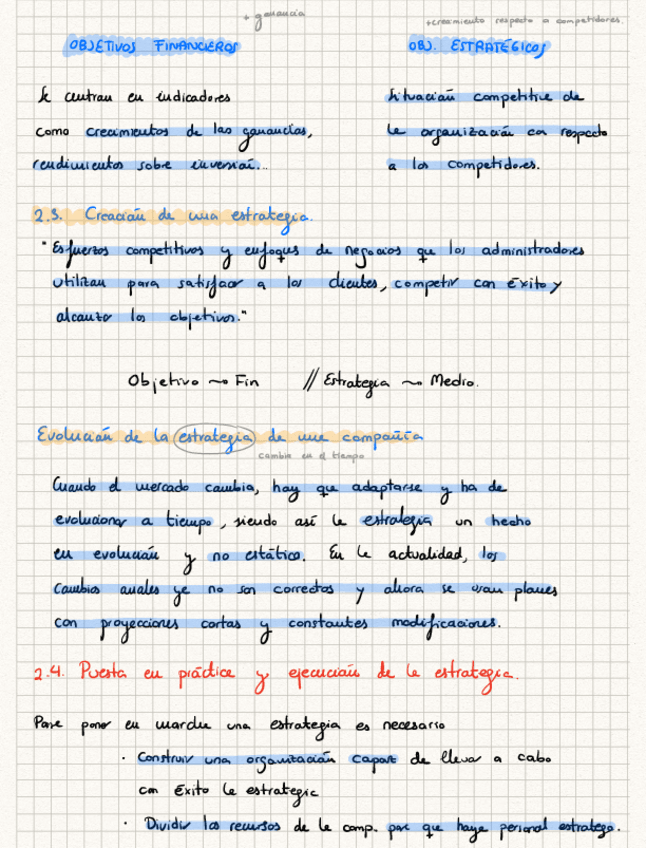 + ganancia
+crecimiento respecto a competidores.
OBJETIVOS FINANCIEROS
OBJ. ESTRATÉGICOS
Se centran en indicadores
como crecimientos de las ganancias,
rendimientos sobre inversión...
Situación competitiva de
la organización con respecto
a los competidores.
2.3. Creación de una estrategia.
"Esfuerzos competitivos y enfoques de negocios que los administradores
utilizan para satisfacer a los clientes, competir con éxito y
alcanzar los objetivos."
Objetivo ⤳ Fin // Estrategia ⤳ Medio.
Evolución de la estrategia de una compañía
cambia en el tiempo
Cuando el mercado cambia, hay que adaptarse y ha de
evolucionar a tiempo, siendo así la estrategia un hecho
en evolución y no estático. En la actualidad, los
cambios anuales ya no son correctos y ahora se usan planes
con proyecciones cortas y constantes modificaciones.
2.4. Puesta en práctica y ejecución de la estrategia.
Para poner en marcha una estrategia es necesario
· Construir una organización capaz de llevar a cabo
con éxito la estrategia
· Dividir los recursos de la comp. par que haya personal estratego.